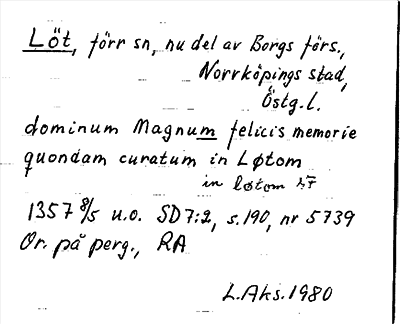 Löt, förr sn, nu del av Borgs förs.,
Norrköpings stad,
Östg.l.
dominum Magnum felicis memorie
quondam curatum in Løtom
in løtom
1357 8/5 u.o. SD 7:2, s.190, nr 5739
Or. på perg., RA
L.Aks. 1980